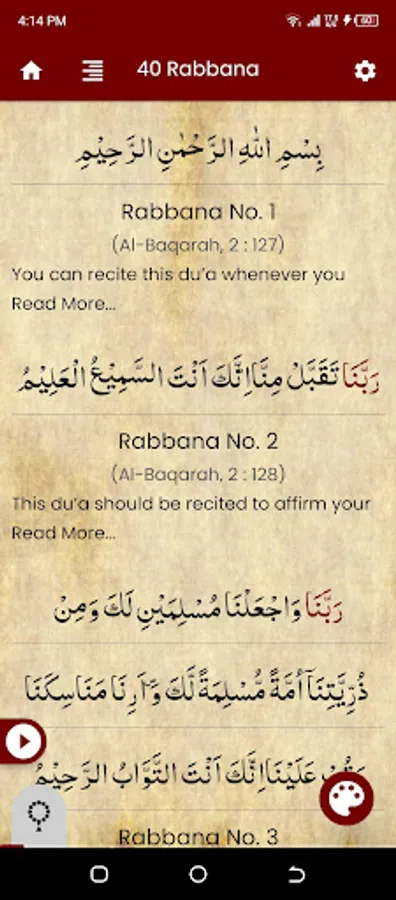 4:14 PM
60
40 Rabbana
بِسْمِ اللّٰهِ الرَّحْمٰنِ الرَّحِيْمِ
Rabbana No. 1
(Al-Baqarah, 2 : 127)
You can recite this du’a whenever you
Read More...
رَبَّنَا تَقَبَّلْ مِنَّا اِنَّكَ اَنْتَ السَّمِيْعُ الْعَلِيْمُ
Rabbana No. 2
(Al-Baqarah, 2 : 128)
This du’a should be recited to affirm your
Read More...
رَبَّنَا وَاجْعَلْنَا مُسْلِمَيْنِ لَكَ وَمِنْ
ذُرِّيَّتِنَآ اُمَّةً مُّسْلِمَةً لَّكَ وَاَرِنَا مَنَاسِكَنَا
عَلَيْنَا اِنَّكَ اَنْتَ التَّوَّابُ الرَّحِيْمُ
Rabbana No. 3